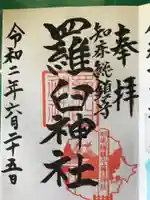 奉拝
知床総鎮守
羅臼神社
令和二年六月二十五日